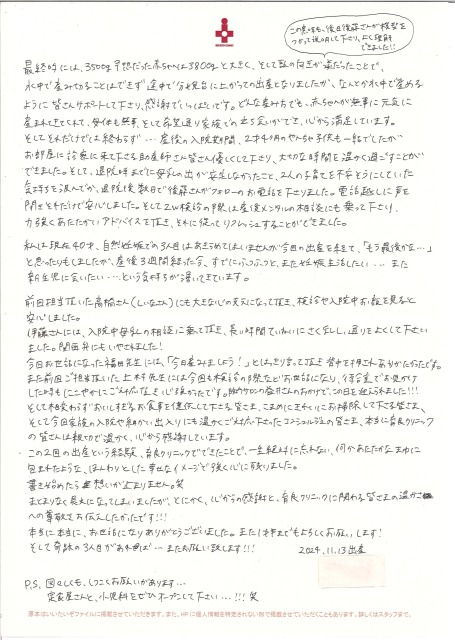 この意味も、後日後藤さんが模型を
つかって説明して下さり、よく理解
できました!!
最終的には、3500g予想だった赤ちゃんは3800gと大きく、そして頭の向きが逆だったことで、
水中で産みきることはできず途中で分娩台に上がっての出産となりましたが、なんとか水中で産める
ように皆さんサポートして下さり、感謝でいっぱいです。どんな産み方でも、赤ちゃんが無事に元気に
産まれてきてくれて、母体も無事、そして希望通り家族での立ち会いができ、心から満足しています。
そしてそれだけでは終わらず…産後の入院期間、2才4ヶ月のやんちゃ子供も一緒でしたが
お部屋に診察に来て下さる助産師さん皆さん優しくして下さり、大切な時間を温かく過ごすことが
できました。そして、退院時までに母乳の出が安定しなかったこと、2人の子育てを不安そうにしていた
気持ちを汲んでか、退院後数日で後藤さんがフォローのお電話を下さりました。電話越しに声を
聞きそれだけで安心しました。そして2W検診の際は産後メンタルの相談にも乗って下さり、
力強くあたたかいアドバイスを頂き、それに従ってリフレッシュすることができました。
私は現在40才、自然妊娠での3人目はあきらめてはいませんが今回の出産を経て、「もう最後かな…」
と思ったりもしましたが、産後3週間経った今、すでにふつふつと、また妊娠生活したい…また
新生児に会いたい…という気持ちが湧いてきています。
前回担当頂いた高橋さん(しいなさん)にも大きな心の支えになって頂き、検診や入院中お顔を見ると
安心しました。
伊藤さんには、入院中母乳の相談に乗って頂き、長い時間ていねいにさく乳し、通りをよくして下さい
ました。関西弁にもいやされました!
今回お世話になった福田先生には、「今日産みましょう!」とはっきり言って頂き背中を押され、ありがたかったです。
また前回ご担当頂いた上村先生には今回も検診の際などお世話になり、待合室でお見かけ
した時もにこやかにごあいさつ頂き心強かったです。
そして相変わらずおいしすぎるお食事を提供して下さる皆さま、こまめにきれいにお掃除して下さる皆さま、
そして今回家族の入院や細かい出入りにも温かくごあいさつ下さったコンシェルジュの皆さま、本当に育良クリニック
の皆さんは親切で温かく、心から感謝しています。
この2回の出産という経験、育良クリニックでできたことで、一生絶対に忘れない、何かあたたかなまゆに
包まれたような、ほんわりとした幸せなイメージで強く心に残りました。
書き始めたら想いが止まりません。笑
まとまりなく長文になってしまいましたが、とにかく、心からの感謝と、育良クリニックに関わる皆さまの温かさ
への尊敬をお伝えしたかったです!!!
本当に本当に、お世話になりありがとうございました。また1才までもよろしくお願いします!
そして奇跡の3人目があれば…またお願い致します!!! 2024.11.13出産
P.S. 図々しくも、しつこくお願いがあります…
定食屋さんと、小児科をぜひオープンして下さい…!!! 笑
原本はいいたいぞファイルに掲載させていただきます。また、HPに個人情報を特定されない形で掲載させていただくこともあります。詳しくはスタッフまで。